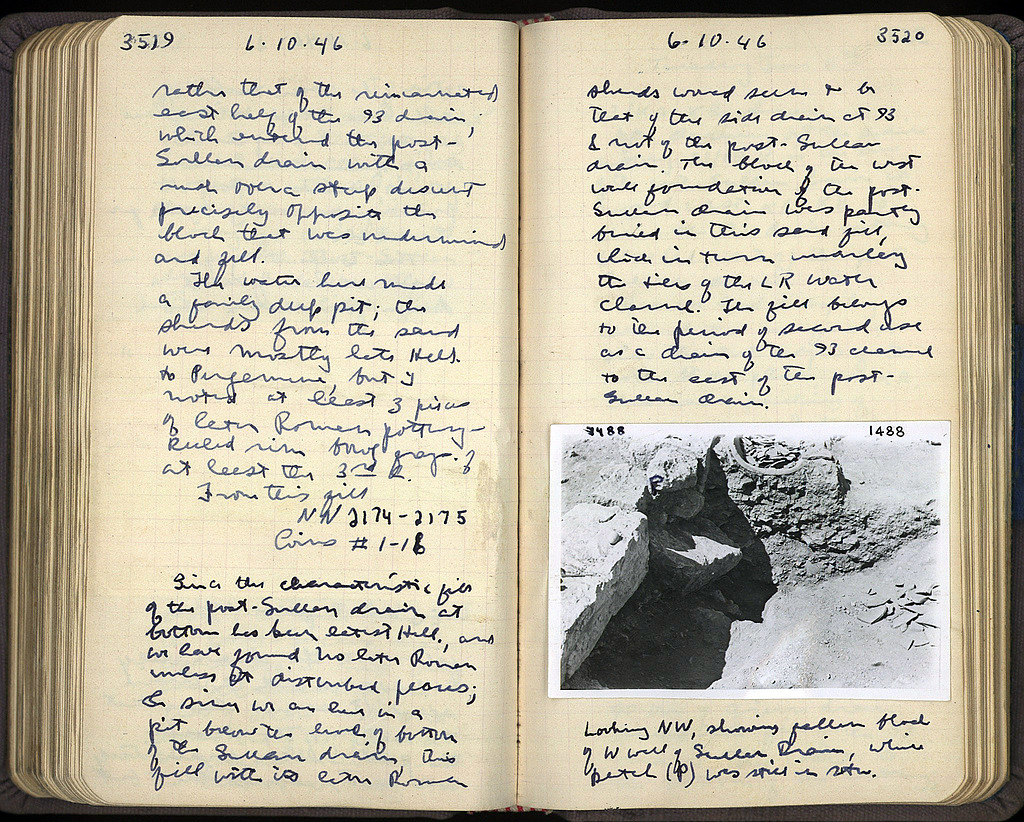 3519
6·10·46
rather that of the reincarnated
east half of the 93 drain,
which entered the post-
Sullan drain with a
rush over a steep descent
precisely opposite the
block that was undermined
and fell.
The water here made
a fairly deep pit; the
sherds from the sand
were mostly late Hell.
to Pergamene, but I
noted at least 3 pieces
of later Roman pottery –
rim bowl
at least the 3rd
From this fill
NN 2174–2175
Coins # 1–18
Since the characteristic fill
of the post-Sullan drain at
bottom has been latest Hell., and
we have found no later Roman
unless at disturbed places;
& since we are here in a
pit below the level of bottom
of the Sullan drain, this
fill with its later Roman
6·10·46
3520
sherds would seem to be
that of the side drain at 93
& not of the post-Sullan
drain. The block of the west
wall foundation of the post-
Sullan drain was partly
buried in this sand fill,
which in turn
the tiles of the LR water
channel. The fill belongs
to the period of second use
as a drain of the 93 channel
to the east of the post-
Sullan drain.
1488
1488
P
Looking NW, showing fallen block
of W wall of Sullan Drain, while
patch (P) was still in situ.